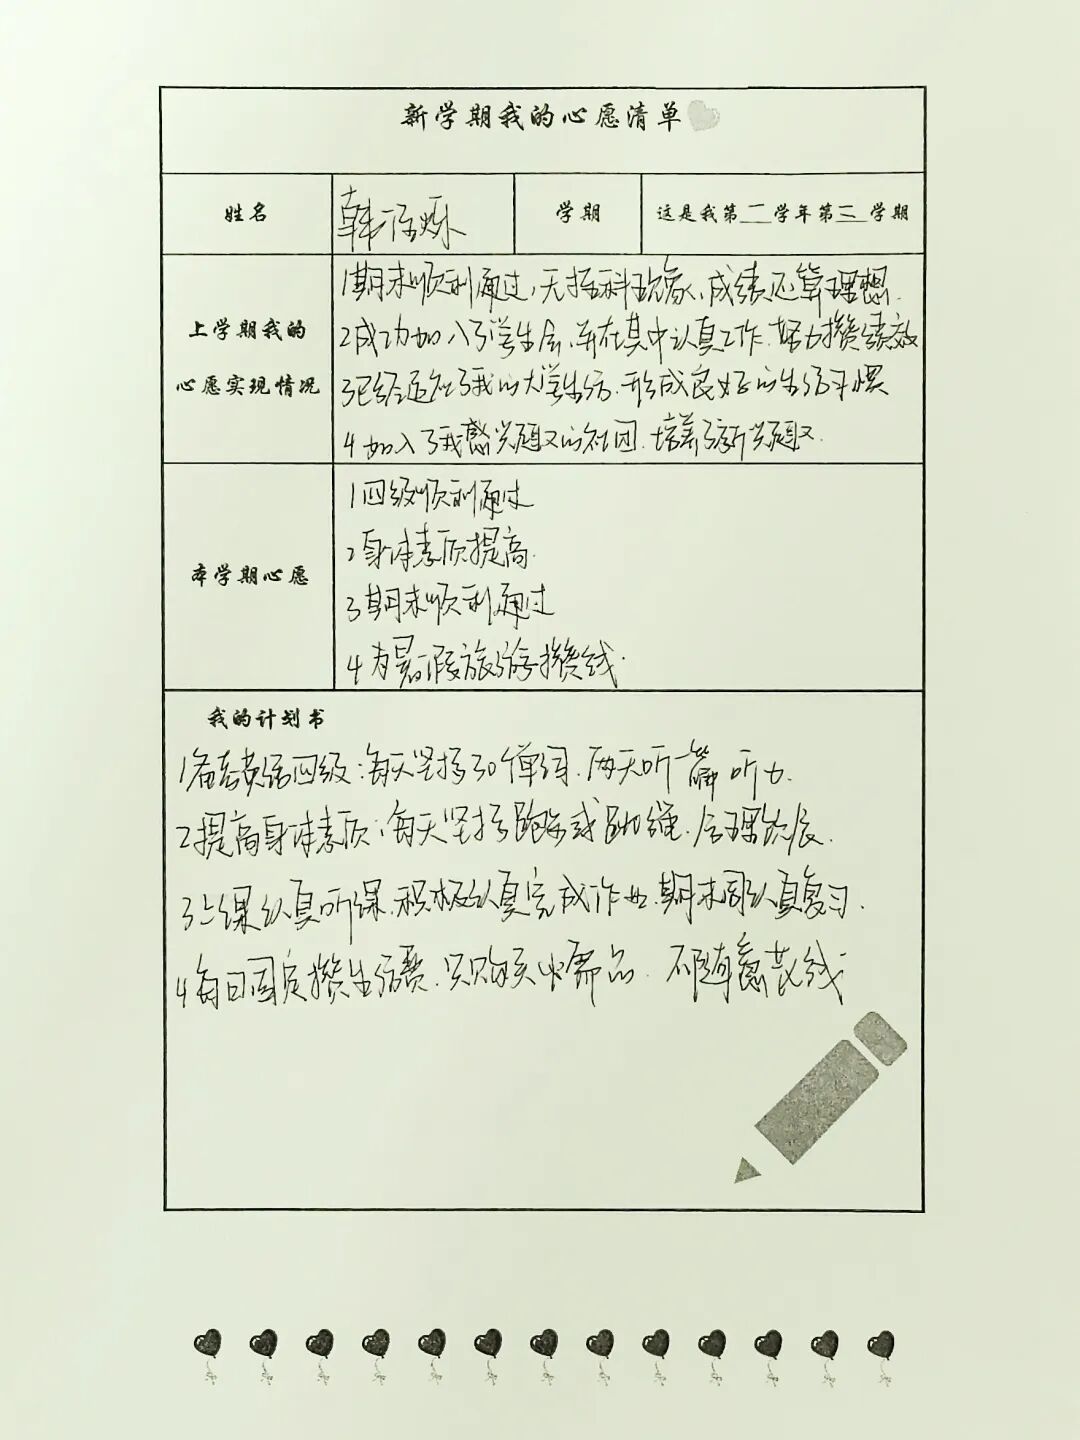 新学期我的心愿清单
姓名
韩
学期
这是我第二学年第三学期
上学期我的
心愿实现情况
1期末顺利通过,无挂科现象,成绩还算理想.
2成功加入了学生会,并在其中认真工作.努力攒绩效
3已经适应了我的大学生活.形成良好的生活习惯
4加入了我感兴趣的社团.培养了新兴趣.
本学期心愿
1四级顺利通过
2身体素质提高.
3期末顺利通过
4为暑假旅游攒钱.
我的计划书
1备考英语四级:每天坚持30个单词.两天听一篇听力.
2提高身体素质:每天坚持跑步或跳绳.合理饮食.
3上课认真听课.积极认真完成作业.期末周认真复习.
4每日固定攒生活费.只购买必需品.不随意花钱.